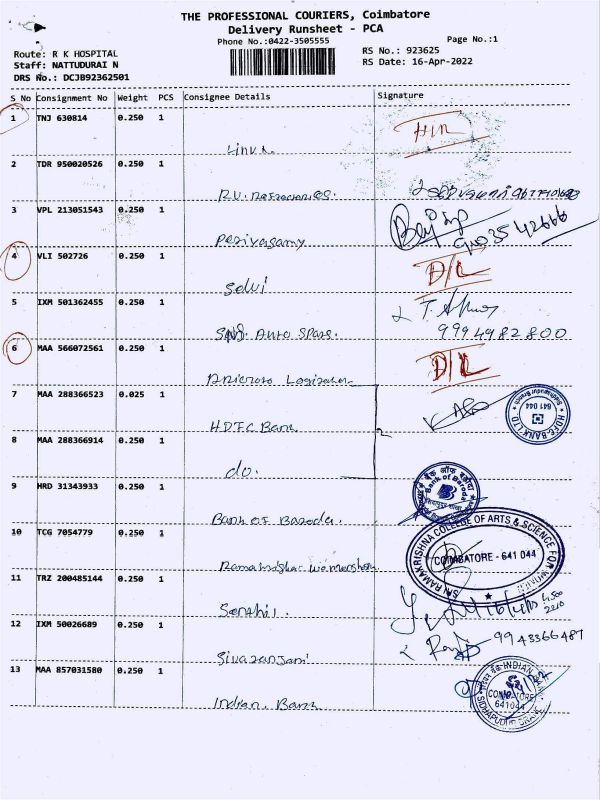 THE PROFESSIONAL COURIERS, Coimbatore
Delivery Runsheet - PCA
Phone No.:0422-3505555
Page No.:1
Route: R K HOSPITAL
RS No.: 923625
Staff: NATTUDURAI N
RS Date: 16-Apr-2022
DRS No.: DCJB92362501
S No Consignment No Weight PCS Consignee Details Signature
1 TNJ 630814 0.250 1
2 TDR 950020526 0.250 1
R.V.
3 VPL 213051543 0.250 1
9103542666
Periyasamy
4 VLI 502726 0.250 1
D/L
Selvi
5 IXM 501362455 0.250 1
Auto Spare.
9994982800
6 MAA 566072561 0.250 1
D/L
7 MAA 288366523 0.025 1
HDFC BANK LTD
641 044
H.D.F.C. Bank
8 MAA 288366914 0.250 1
do.
9 HRD 31343933 0.250 1
बैंक ऑफ़ बड़ौदा
Bank of Baroda
Bank of Baroda.
10 TCG 7054779 0.250 1
SRI RAMAKRISHNA COLLEGE OF ARTS & SCIENCE FOR WOMEN
COIMBATORE - 641 044
11 TRZ 200485144 0.250 1
Senthil.
12 IXM 50026689 0.250 1
9943366487
Sivaranjani
13 MAA 857031580 0.250 1
INDIAN BANK
COIMBATORE
641044
SIDHAPUDUR BRANCH
Indian Bank